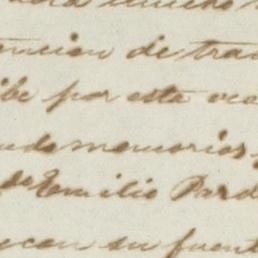 mucho
encion de tra
ibe por esta oca
ndo memorias
de Emilio Pard
ecen su fuent